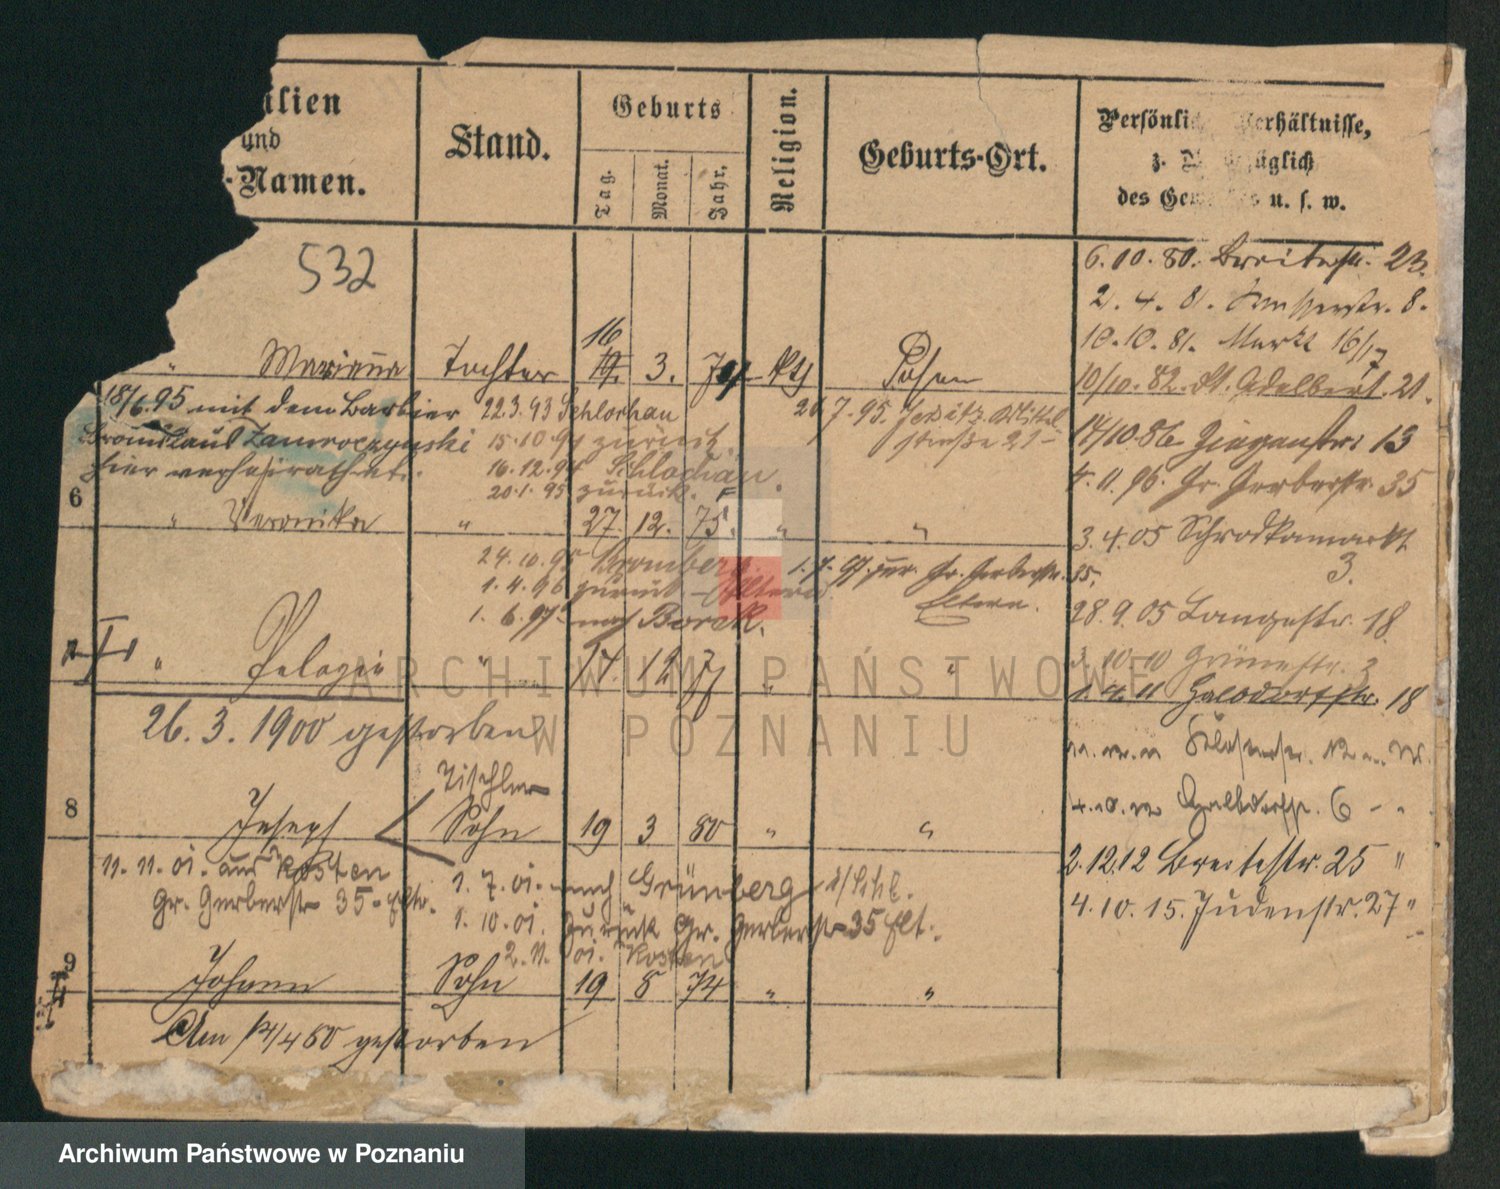 ilien
und
-Namen.
Stand.
Geburts
Tag.
Monat.
Jahr.
Religion.
Geburts-Ort.
Persönli erhältnisse,
z. züglich
des Ge es u. s. w.
532
6.10.80. Breitestr. 23.
2. 4. 81. 8.
10.10.81. Markt 16/17
" Marianna Tochter 16 3. Kth Posen
10/10.82. St. Adelbert. 21.
18/6.95 mit dem Barbier 22.3.93 Schlochau
20.7.95. Jersitz. Mittel
Bronislaus Zamroczynski 15.10.94 zurück.
straße 21
14/10.86 Ziegenstr. 13
hier verheirathet. 16.12.94 Schlochau.
20.1.95 zurück.
4. 11. 96. Gr. Gerberstr. 35
6
" Veronika " 27. 12. 75. " "
3.4.05 Schrodkamarkt
3.
24.10.95 Bromberg.
1.7.97. zur. Gr. Gerberstr. 35.
1.4.96 zurück - Eltern
Eltern.
1. 6. 97 nach Borek.
28.9.05 Langestr. 18
" Pelagia " 17. 12 77 " "
3. 10.10 Grünestr. 3
1.4.11 Halbdorfstr. 18
26.3.1900 gestorben
Tischler
8
Joseph Sohn 19 3 80 " "
4.10.12 Halbdorfstr. 6 - "
2.12.12 Breitestr. 25 "
11.11.01. aus Kosten
1.7.01. nach Grünberg i/Schl.
Gr. Gerberstr 35 - Elt.
1.10.01. zurück Gr. Gerberstr 35 Elt.
4.10.15. Judenstr. 27 "
2.11.01. Kosten
9
Johann Sohn 19 8 74 " "
Am 14/4 80 gestorben
ARCHIWUM PAŃSTWOWE
W POZNANIU
Archiwum Państwowe w Poznaniu